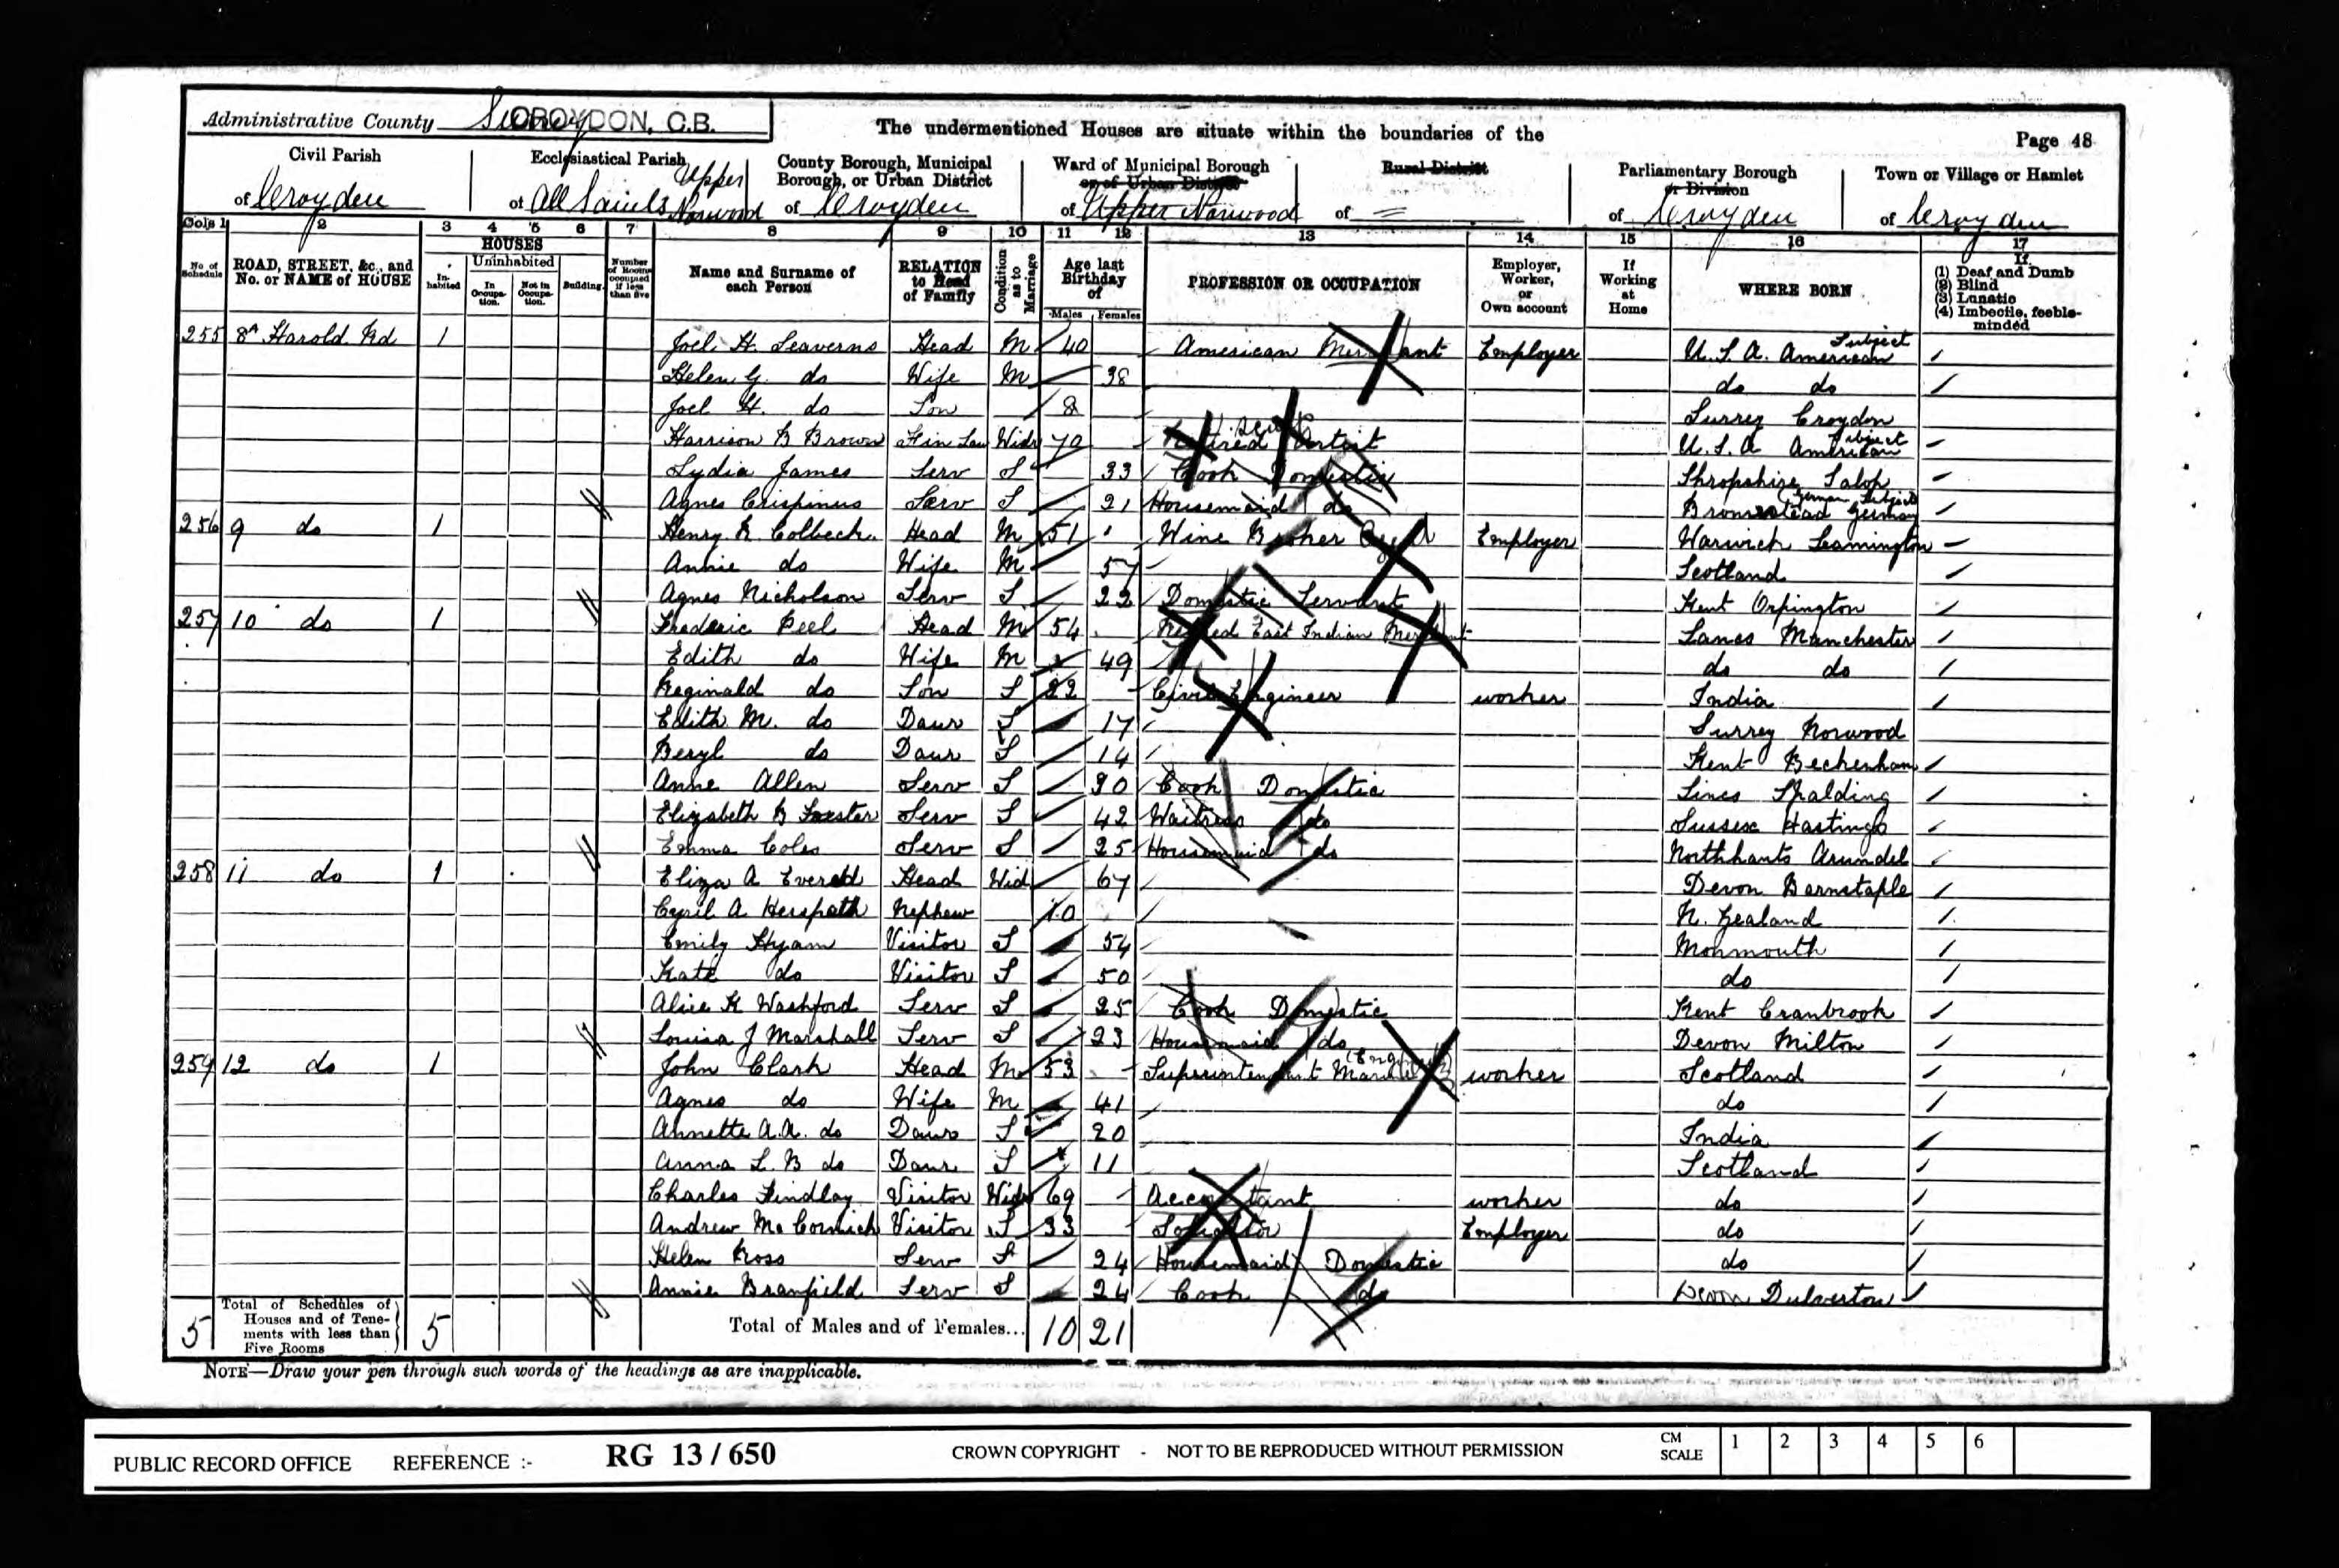 Administrative County Surrey CROYDON, C.B.
The undermentioned Houses are situate within the boundaries of the
Page 48
Civil Parish of Croydon
Ecclesiastical Parish of All Saints Upper Norwood
County Borough, Municipal Borough, or Urban District of Croydon
Ward of Municipal Borough or of Urban District of Upper Norwood
Rural District of =
Parliamentary Borough or Division of Croydon
Town or Village or Hamlet of Croydon
Cols 1 2 3 4 5 6 7 8 9 10 11 12 13 14 15 16 17
No. of Schedule
ROAD, STREET, &c., and No. or NAME of HOUSE
HOUSES
Inhabited
Uninhabited
In Occupation.
Not in Occupation.
Building.
Number of Rooms occupied if less than five
Name and Surname of each Person
RELATION to Head of Family
Condition as to Marriage
Age last Birthday of
Males Females
PROFESSION OR OCCUPATION
Employer, Worker, or Own account
If Working at Home
WHERE BORN
If
(1) Deaf and Dumb
(2) Blind
(3) Lunatic
(4) Imbecile, feeble-minded
255 8A Harold Rd 1 Joel H. Seaverns Head M 40 American Merchant Employer U.S.A. American Subject
Helen G. do Wife M 38 do do
Joel H. do Son 8 Surrey Croydon
Harrison B Brown F in Law Widr 70 Retired Artist U.S.A American Subject
Lydia James Serv S 33 Cook Domestic Shropshire Salop
Agnes Crispinus Serv S 21 Housemaid do Germany German Subject
256 9 do 1 Henry E. Colbeck Head M 51 Wine Broker Agent Employer Warwick Leamington
Annie do Wife M 57 Scotland
Agnes Nicholson Serv S 22 Domestic Servant Kent Orpington
257 10 do 1 Frederic Peel Head M 54 Retired East Indian Merchant Lancs Manchester
Edith do Wife M 49 do do
Reginald do Son S 22 Civil Engineer worker India
Edith M. do Daur S 17 Surrey Norwood
Beryl do Daur S 14 Kent Beckenham
Anne Allen Serv S 30 Cook Domestic Lincs Spalding
Elizabeth B Serv S 42 Waitress do Sussex Hastings
Emma Coles Serv S 25 Housemaid do Northhants Arundel
258 11 do 1 Eliza A Everett Head Wid 67 Devon Barnstaple
Cyril A Herspath Nephew 10 N. Zealand
Emily Hyam Visitor S 54 Monmouth
Kate do Visitor S 50 do
Alice K Washford Serv S 25 Cook Domestic Kent Cranbrook
Louisa J Marshall Serv S 23 Housemaid do Devon Milton
259 12 do 1 John Clark Head M 53 Superintendant Marine (Engineer) worker Scotland
Agnes do Wife M 41 do
Annette A.A. do Daur S 20 India
Anna L. B do Daur S 11 Scotland
Charles Findlay Visitor Widr 69 Accountant worker do
Andrew McCormick Visitor S 33 Solicitor Employer do
Helen Ross Serv S 24 Housemaid Domestic do
Annie Branfield Serv S 24 Cook do Devon Dulverton
5 Total of Schedules of Houses and of Tenements with less than Five Rooms 5 Total of Males and of Females... 10 21
NOTE—Draw your pen through such words of the headings as are inapplicable.
PUBLIC RECORD OFFICE REFERENCE :- RG 13 / 650 CROWN COPYRIGHT - NOT TO BE REPRODUCED WITHOUT PERMISSION CM SCALE 1 2 3 4 5 6